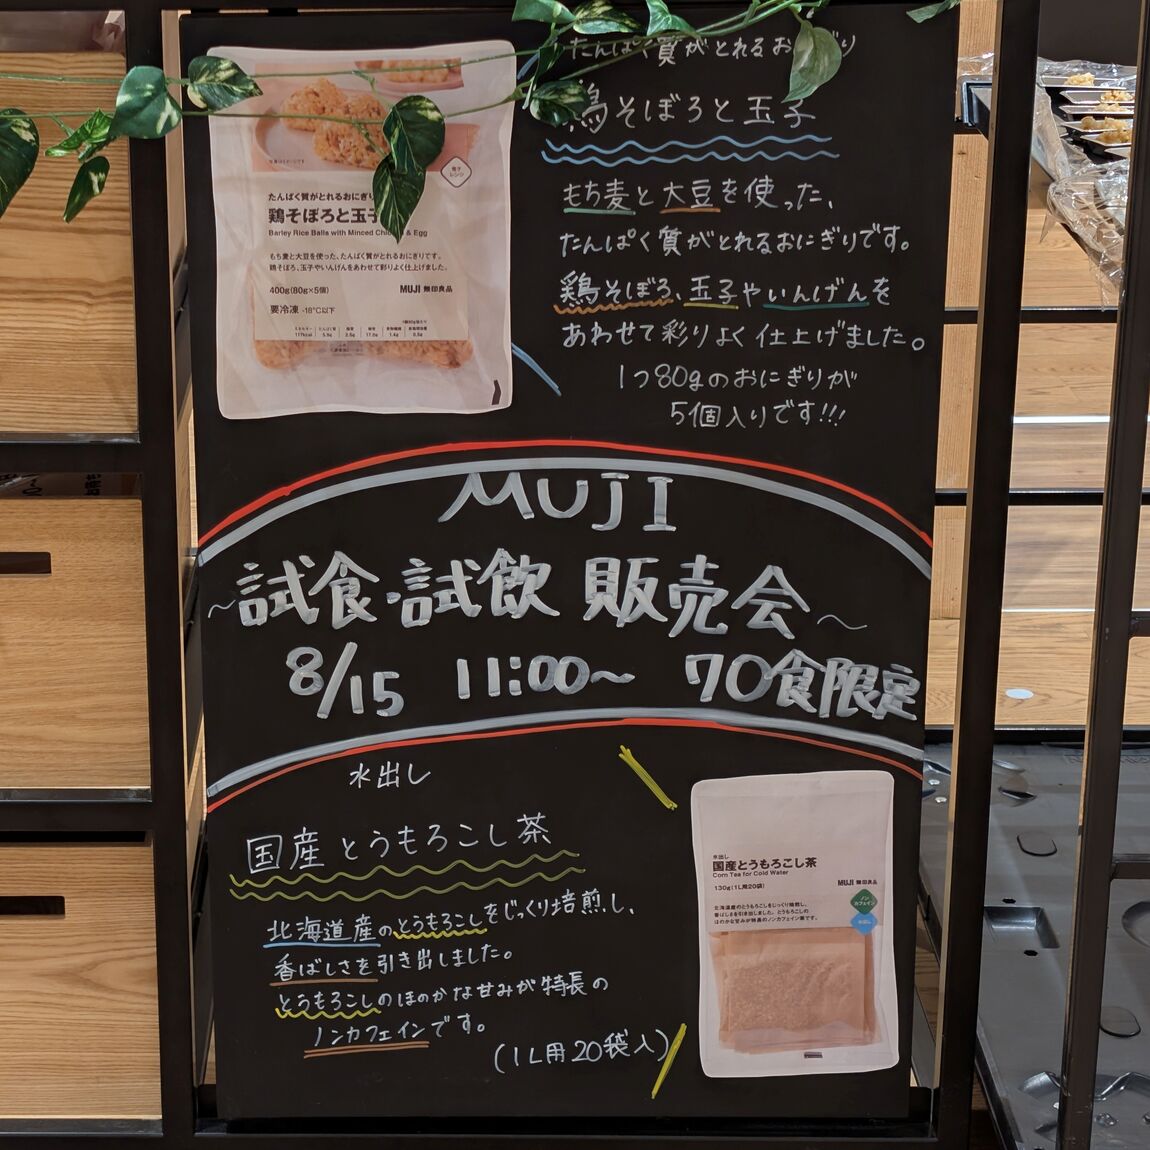 たんぱく質がとれるおにぎり
鶏そぼろと玉子
もち麦と大豆を使った、
たんぱく質がとれるおにぎりです。
鶏そぼろ、玉子やいんげんを
あわせて彩りよく仕上げました。
1つ80gのおにぎりが
5個入りです!!!
たんぱく質がとれるおにぎり
鶏そぼろと玉子
Barley Rice Balls with Minced Chicken & Egg
もち麦と大豆を使った、たんぱく質がとれるおにぎりです。
鶏そぼろ、玉子やいんげんをあわせて彩りよく仕上げました。
400g(80g×5個)
MUJI 無印良品
要冷凍 -18℃以下
電子
レンジ
MUJI
~試食・試飲 販売会~
8/15 11:00~ 70食限定
水出し
国産とうもろこし茶
北海道産のとうもろこしをじっくり焙煎し、
香ばしさを引き出しました。
とうもろこしのほのかな甘みが特長の
ノンカフェインです。
(1L用20袋入)
水出し
国産とうもろこし茶
Corn Tea for Cold Water
130g(1L用20袋)
MUJI 無印良品
北海道産のとうもろこしをじっくり焙煎し、
香ばしさを引き出しました。とうもろこしの
ほのかな甘みが特長のノンカフェイン茶です。
ノン
カフェイン
水出し